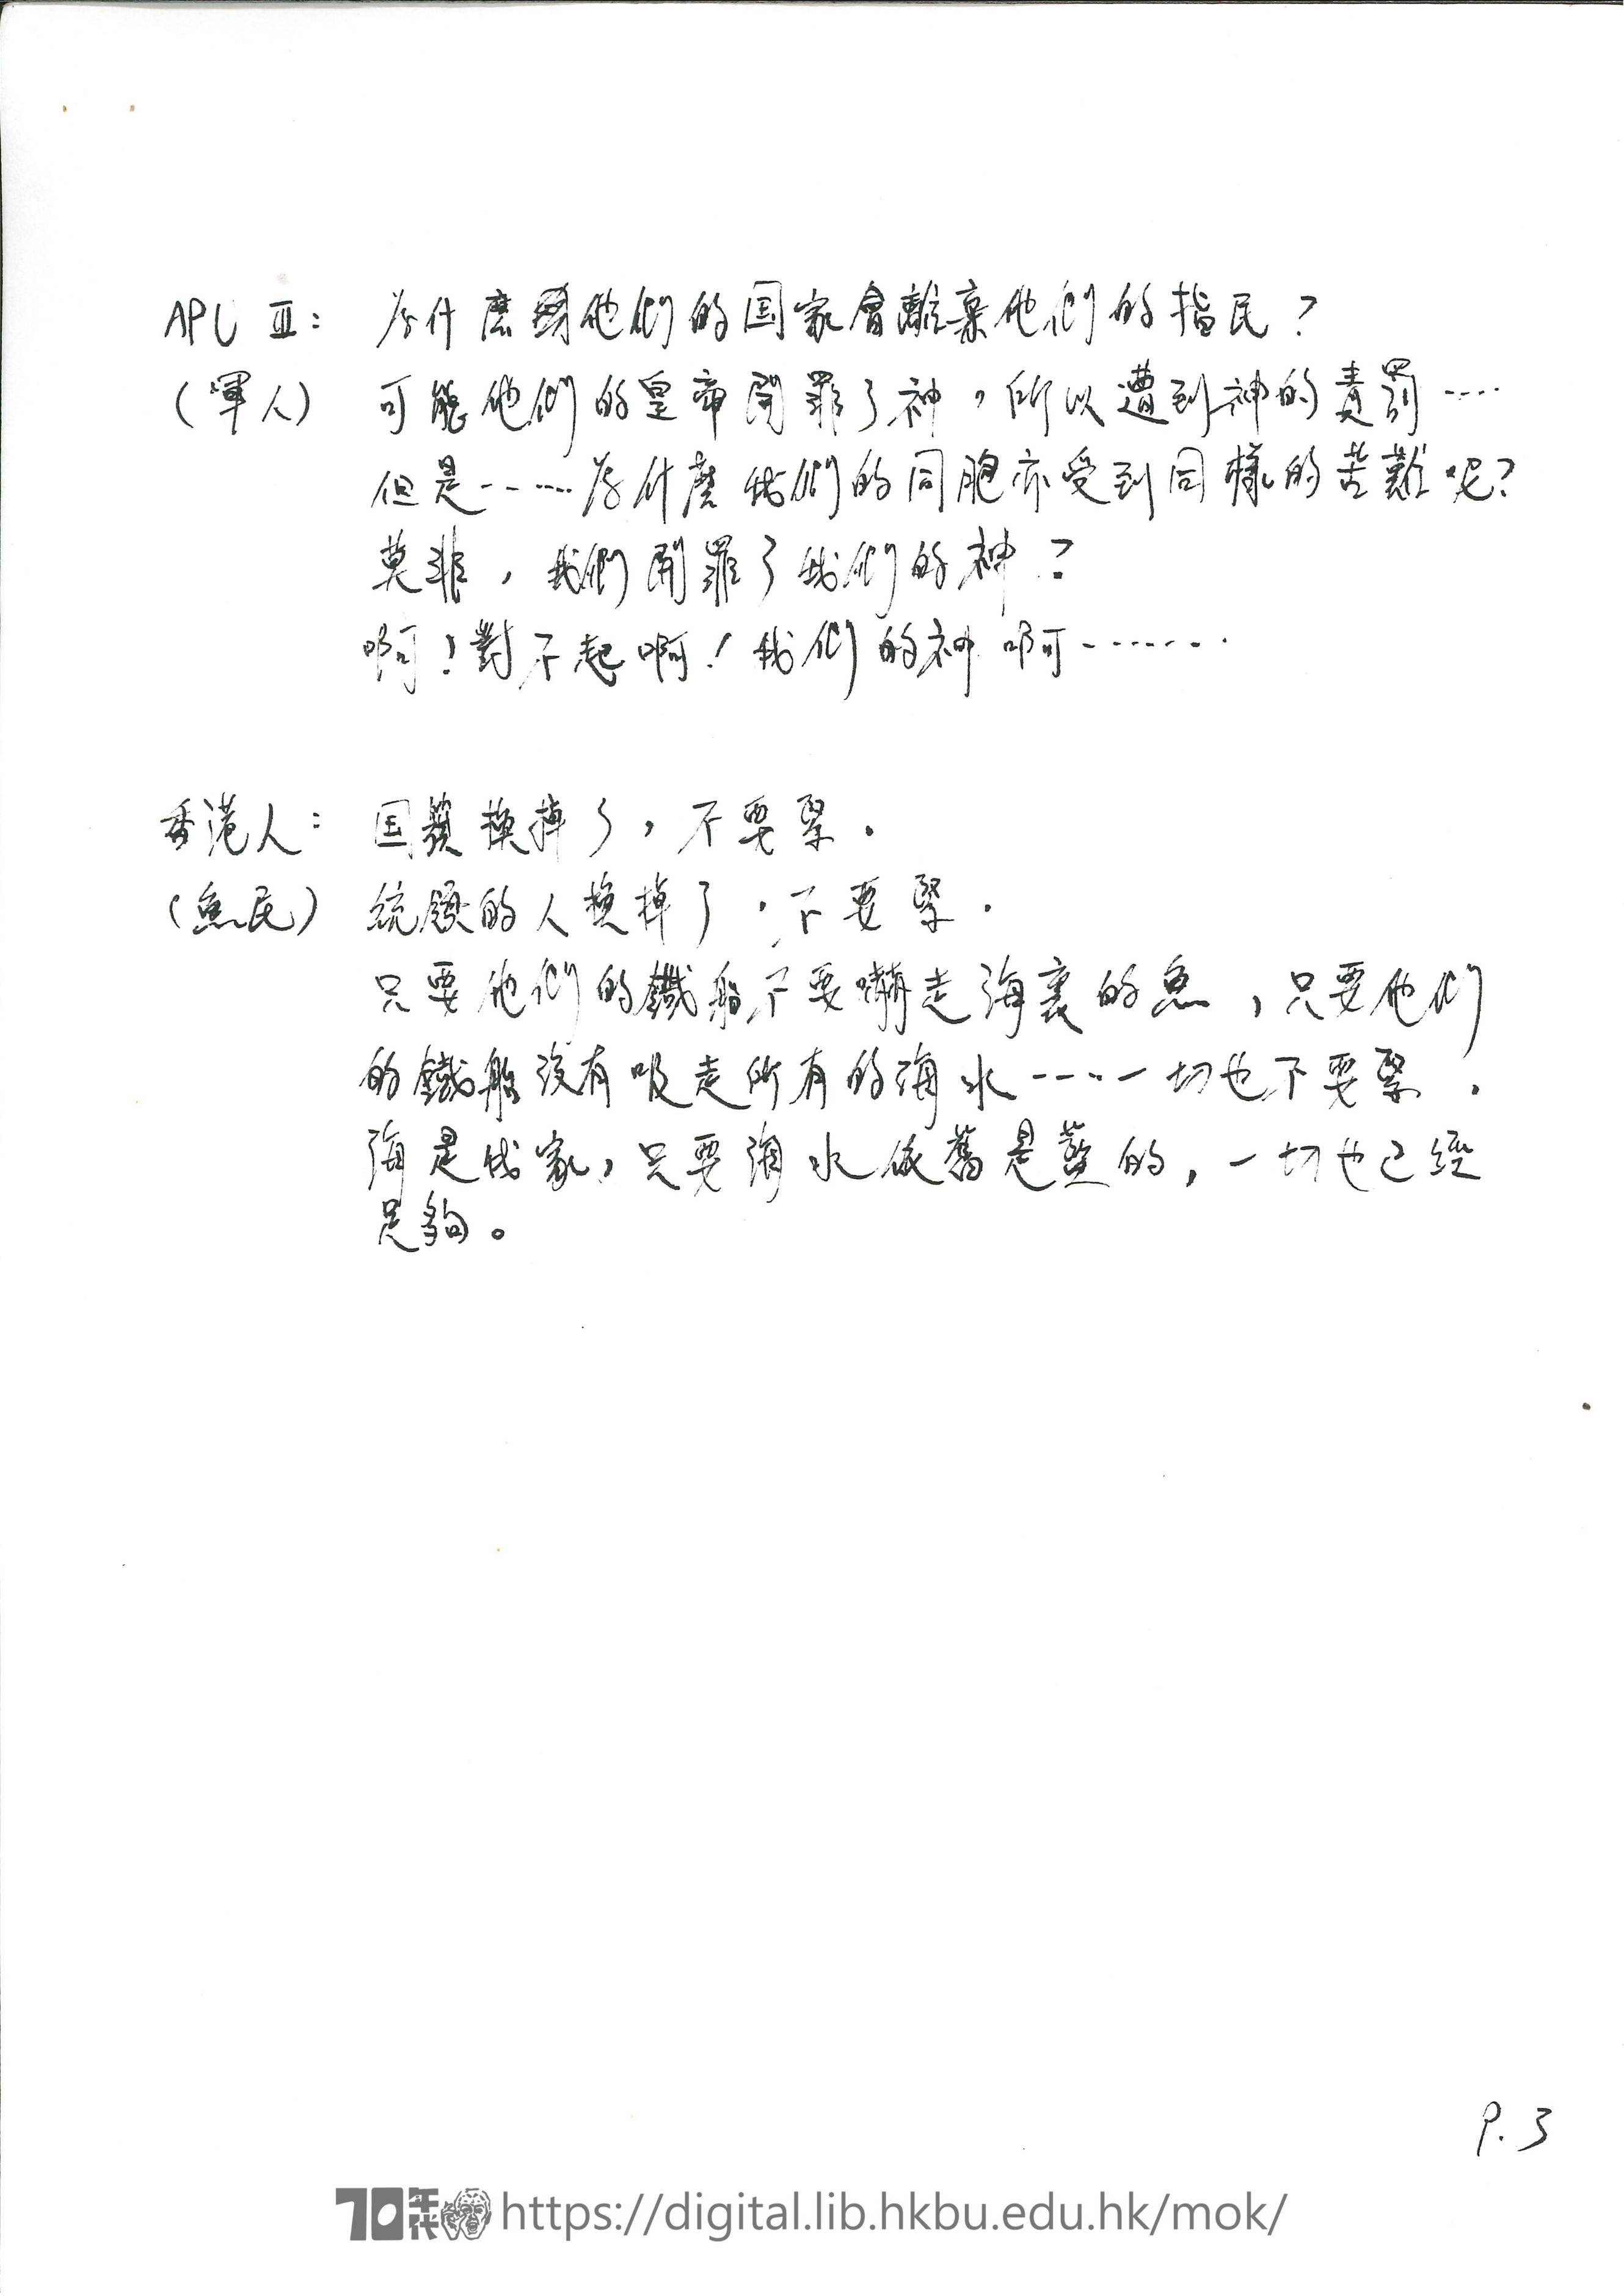 APU III: 为什麽他們的国家會離棄他們的指民？
（軍人） 可能他們的皇帝開罪了神，所以遭到神的責罰……
但是……为什麽我們的同胞亦受到同樣的苦難呢？
莫非，我們開罪了我們的神？
啊！對不起啊！我們的神啊………
香港人： 国旗換掉了，不要緊．
（魚民） 統領的人換掉了．不要緊．
只要他們的鐵船不要嚇走海裏的魚，只要他們
的鐵船没有吸走所有的海水……一切也不要緊．
海是我家，只要海水依舊是藍的，一切也已經
足夠。
P.3
70年代 https://digital.lib.hkbu.edu.hk/mok/